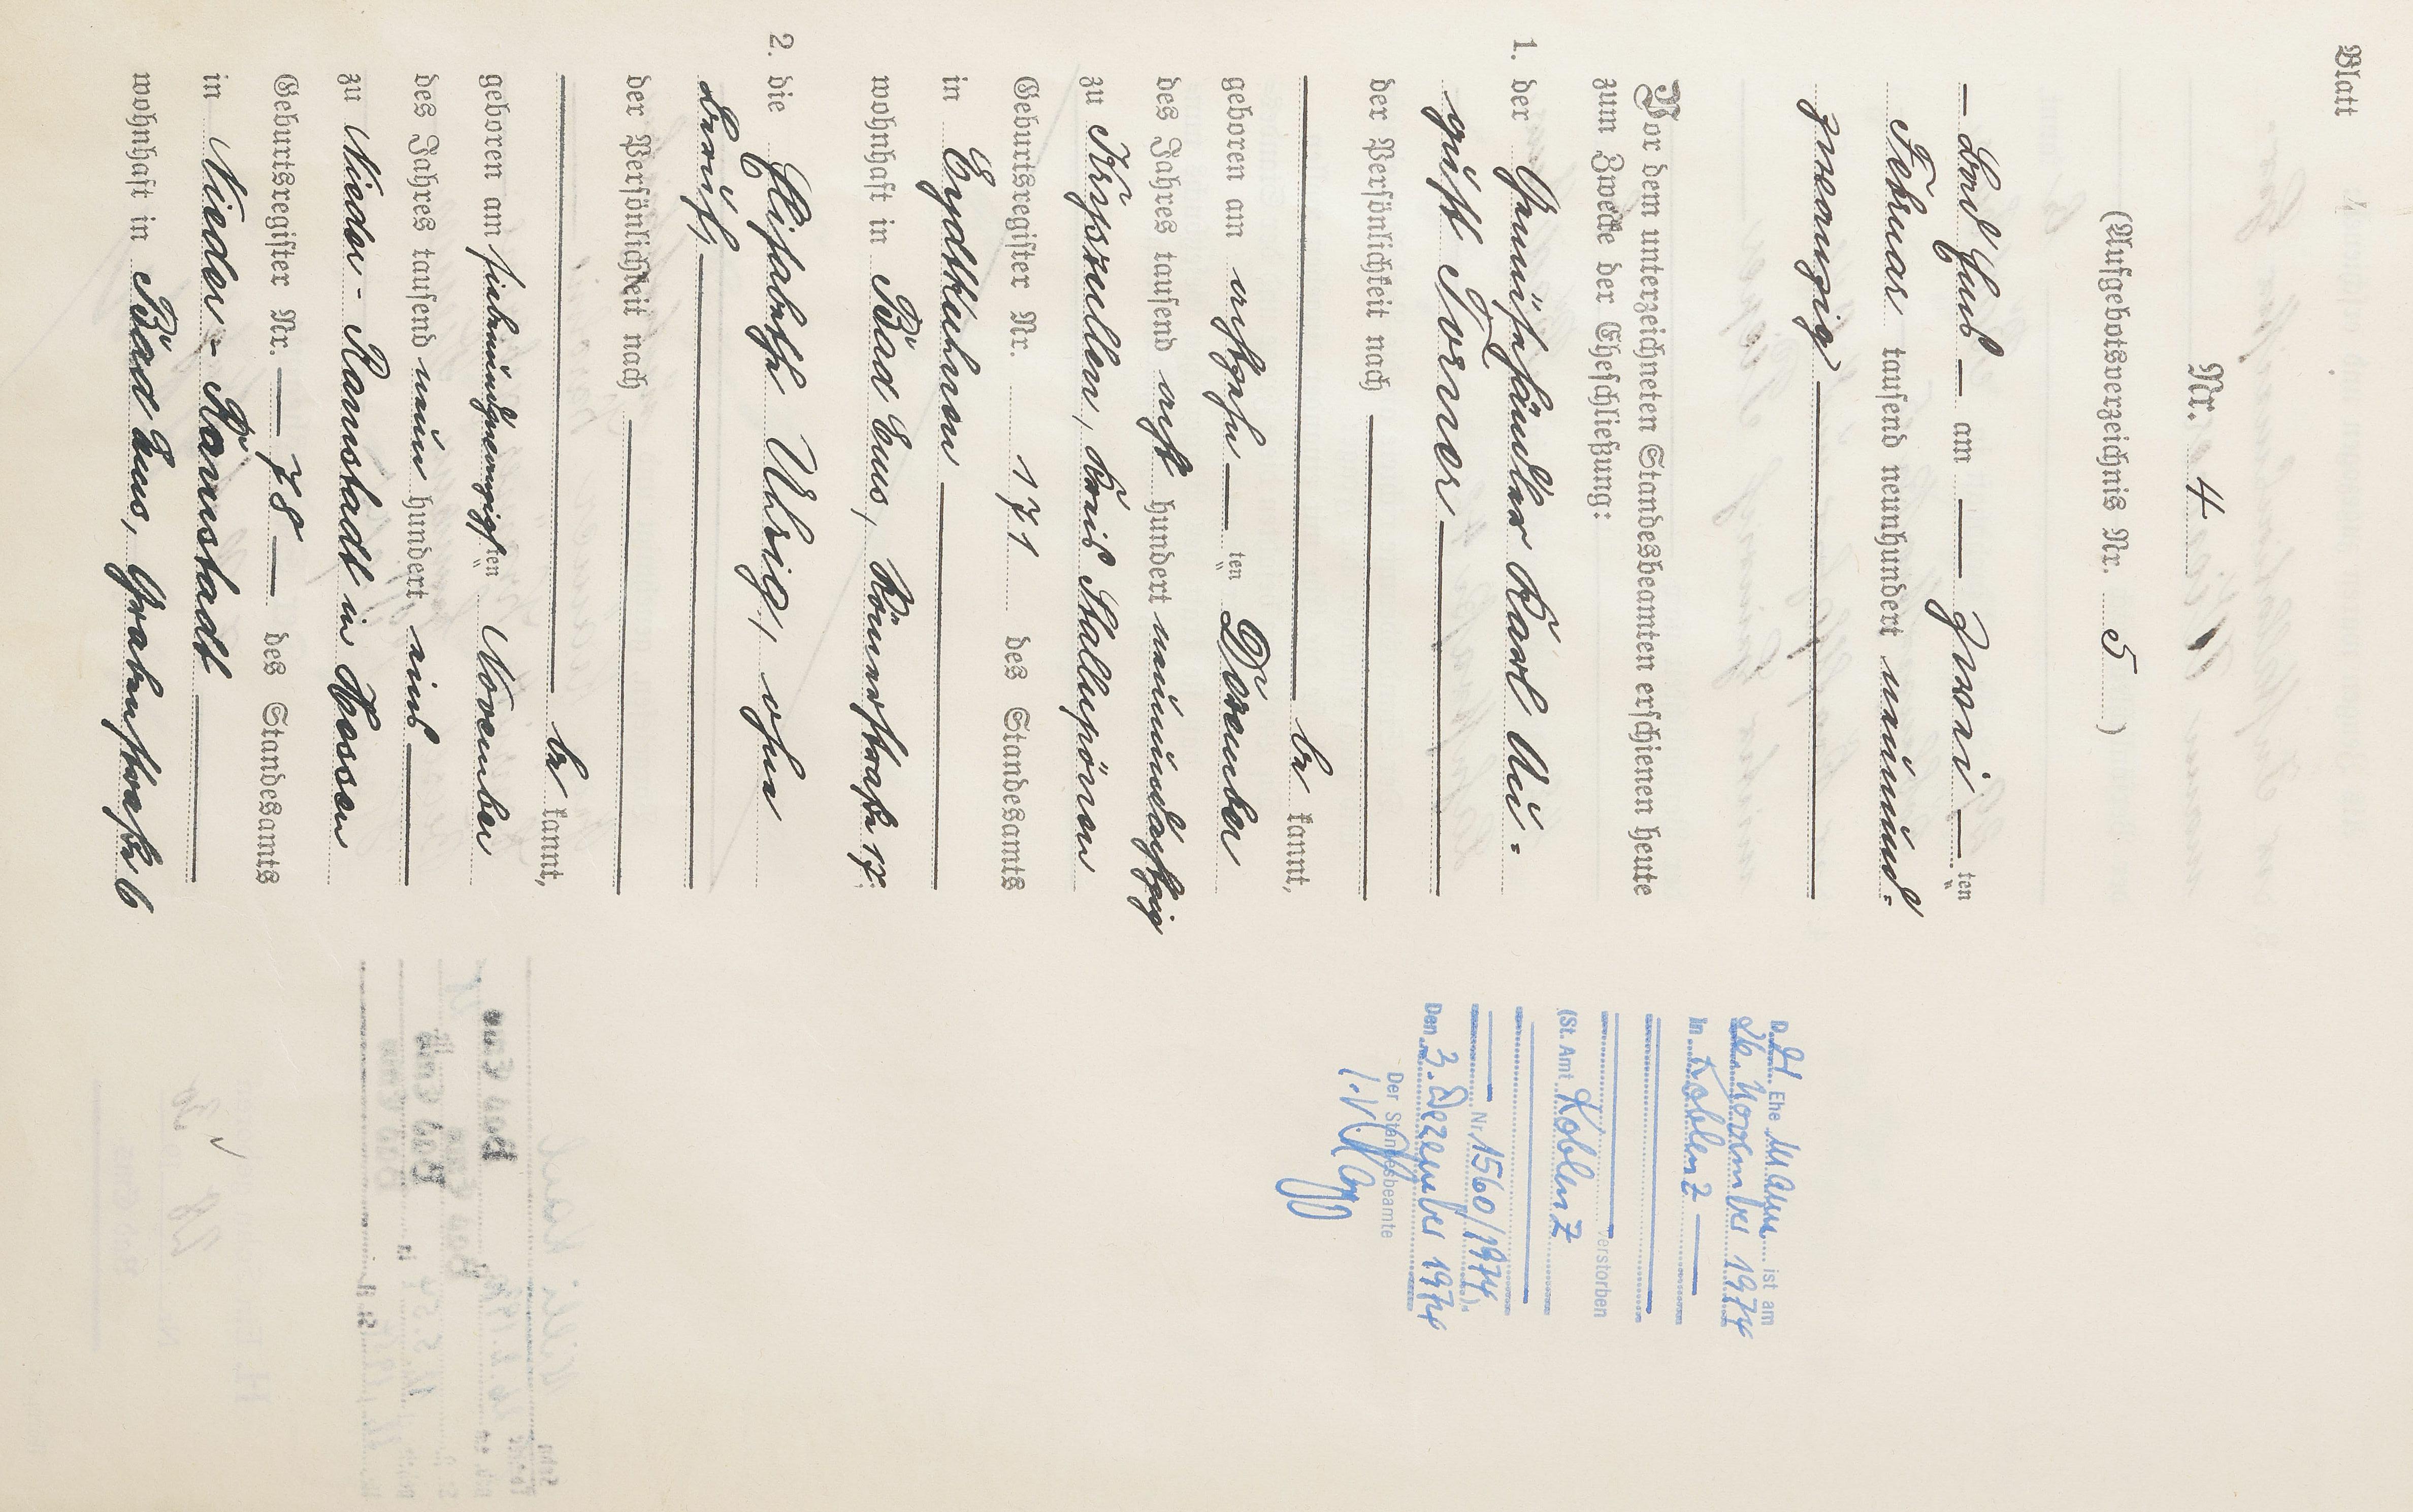 Blatt 4
Nr. 4
(Aufgebotsverzeichnis Nr. 5)
— Bad Ems — am — zwei — ten
Februar tausend neunhundert neunund=
zwanzig
Vor dem unterzeichneten Standesbeamten erschienen heute
zum Zwecke der Eheschließung:
1. der Gemüsehändler Karl Au=
gust Torner
der Persönlichkeit nach
be kannt,
geboren am achtzehn — ten Dezember
des Jahres tausend acht hundert neunundachtzig
zu Kryszullen, Kreis Stallupönen
Geburtsregister Nr. 171 des Standesamts
in Eydtkuhnen
wohnhaft in Bad Ems, Römerstraße 17.
2. die Elisabethe Uhrig, ohne
Beruf,
der Persönlichkeit nach
be kannt,
geboren am siebenundzwanzigsten November
des Jahres tausend neun hundert eins
zu Nieder-Ramstadt in Hessen
Geburtsregister Nr. — 78 — des Standesamts
in Nieder-Ramstadt
wohnhaft in Bad Ems, Grabenstraße 6
D. H. Ehemann ist am
26. November 1974
in Koblenz
verstorben
(St. Amt Koblenz
Nr. 1560/1974).
Den 3. Dezember 1974
Der Standesbeamte
I.V.